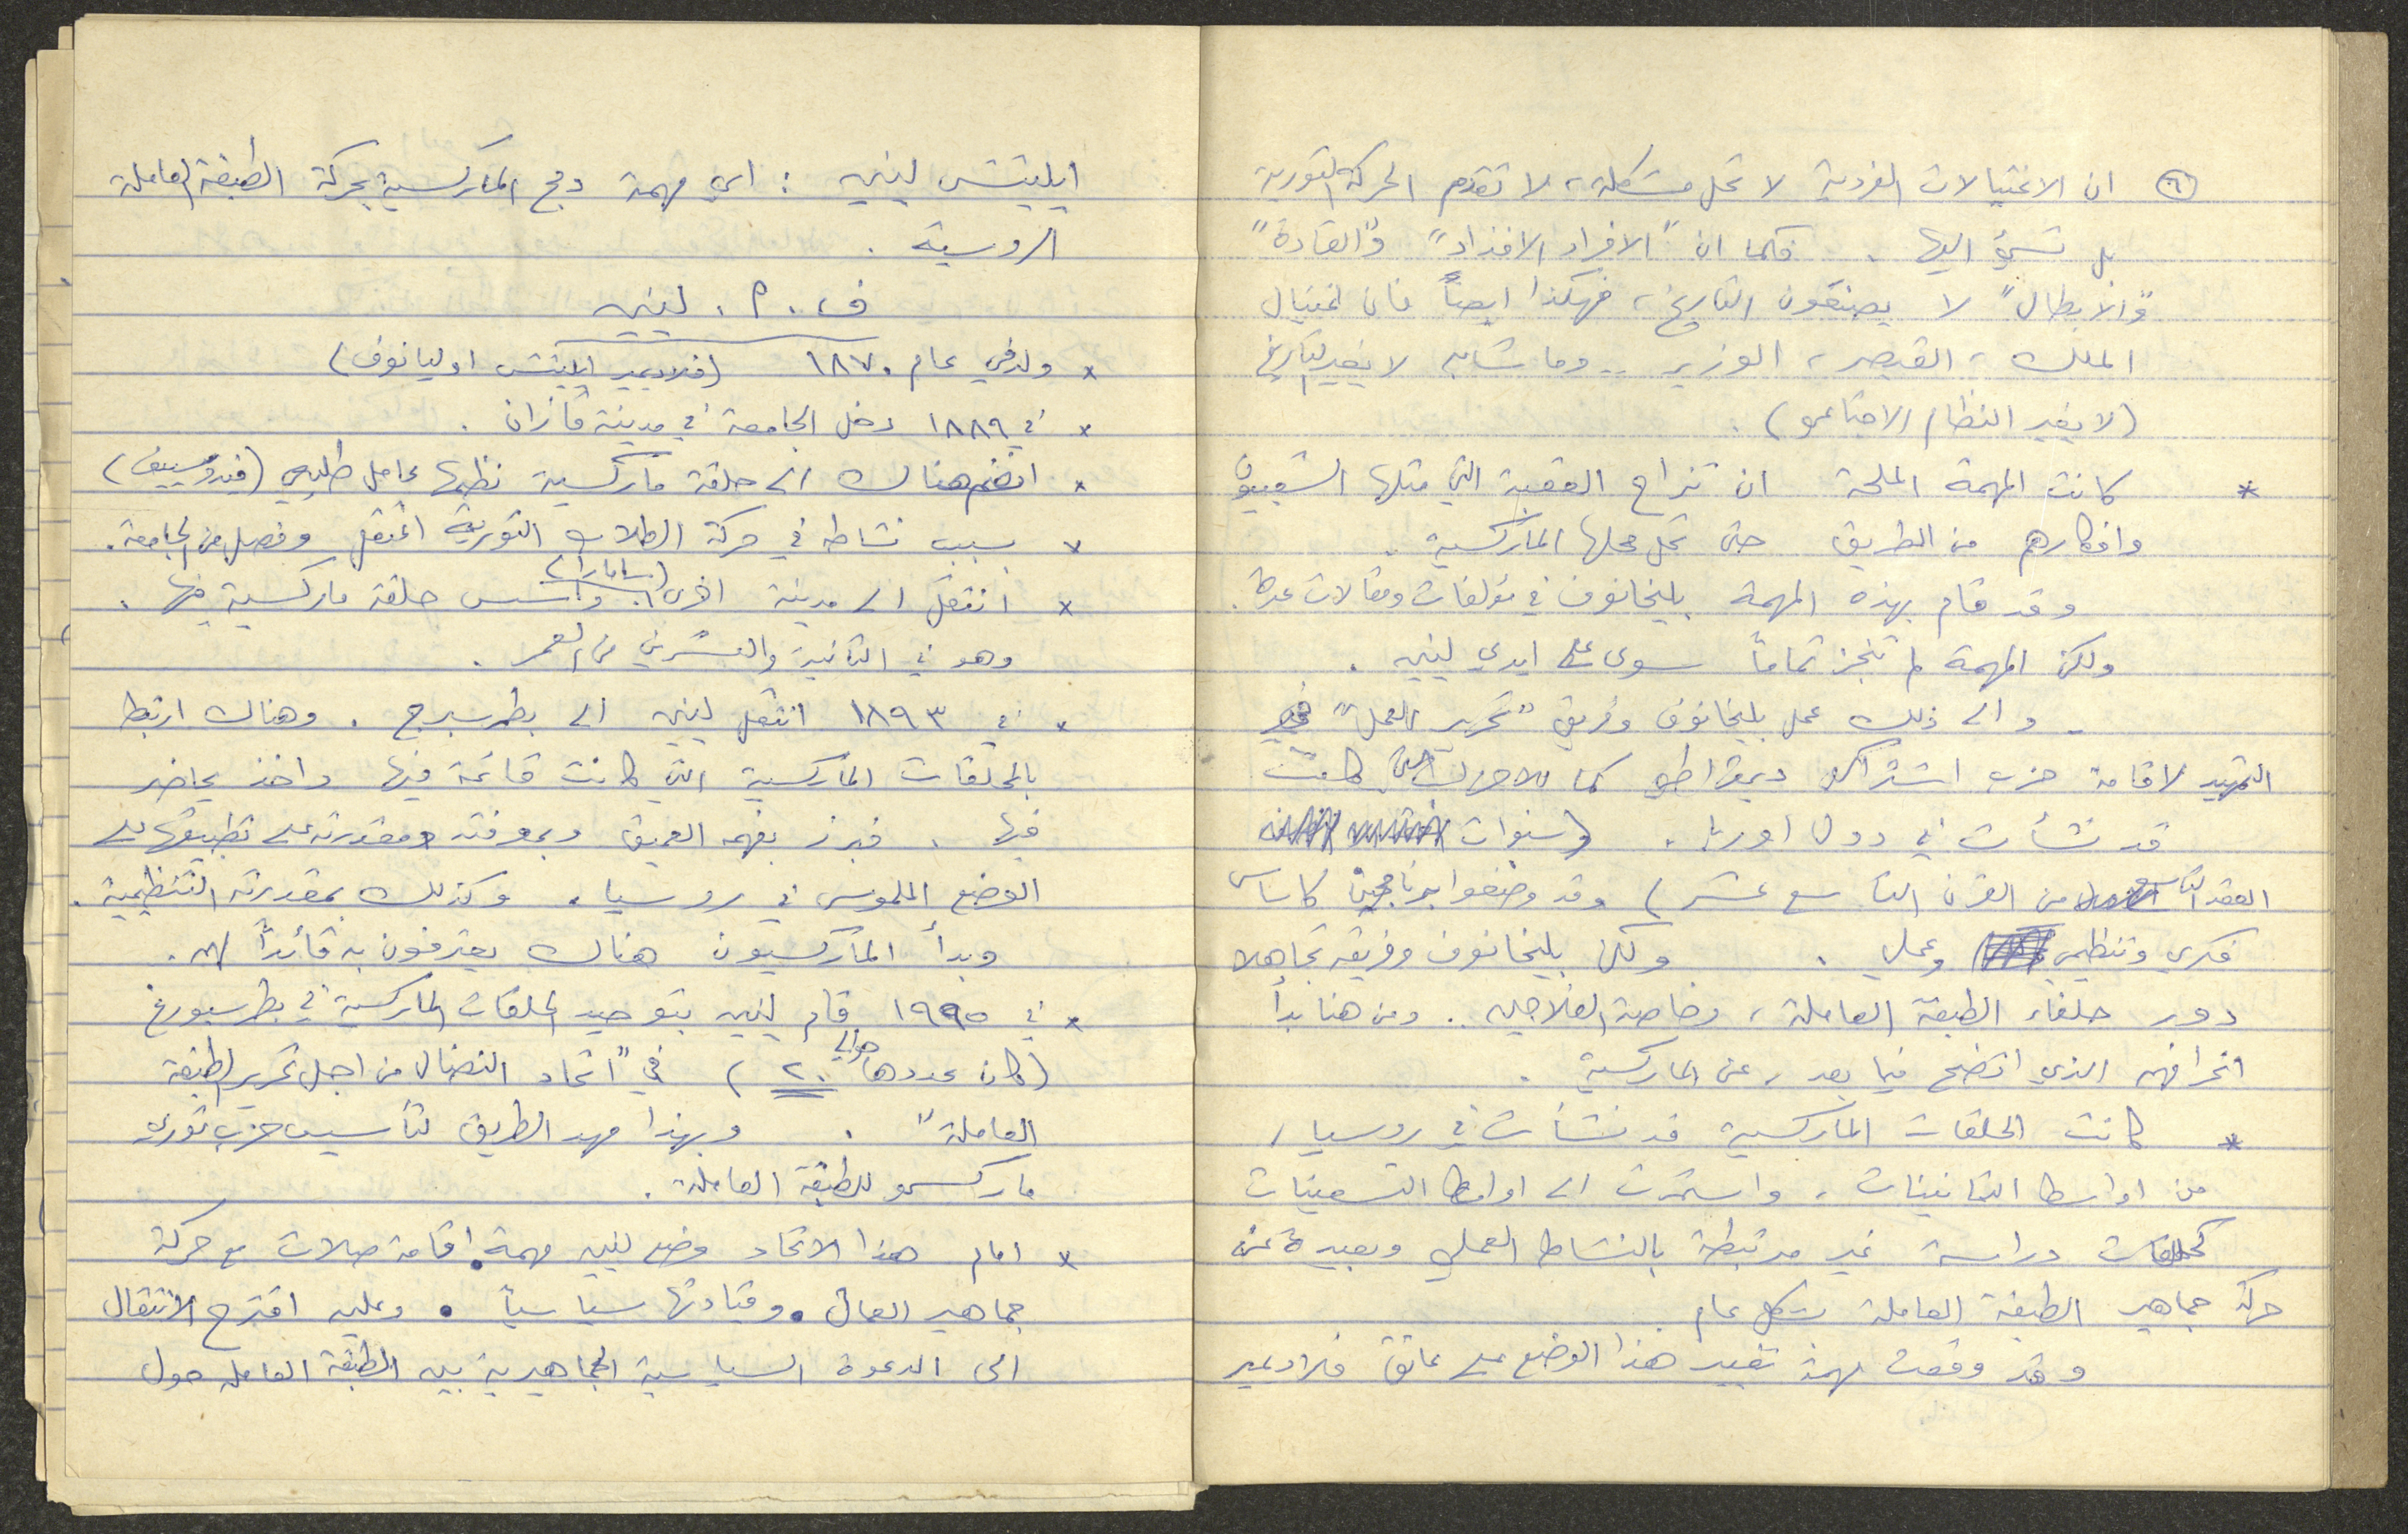 ٦) ان الاغتيالات الفردية لا تحل مشكلة، لا تقدم الحركة الثورية
بل تسيء اليها . فكما ان "الافراد الافذاذ" و"القادة"
و"الابطال" لا يصنعون التاريخ، فهكذا ايضاً فان اغتيال
الملك، القيصر، الوزير .. وما شابه لا يغير التاريخ
(لا يغير النظام الاجتماعي) .
* كانت المهمة الملحة ان تزاح العقبة التي مثلها الشعبيون
وافكارهم من الطريق حتى تحل محلها الماركسية .
وقد قام بهذه المهمة بليخانوف في مؤلفات ومقالات عدة .
ولكن المهمة لم تنجز تماماً سوى على ايدي لينين .
- والى ذلك عمل بليخانوف وفريق "تحرير العمل" في
التمهيد لاقامة حزب اشتراكي ديمقراطي كما الاحزاب التي كانت
قد نشأت في دول اوربا . (سنوات
العقد التاسع من القرن التاسع عشر) وقد وضعوا برنامجين كاساس
فكري وتنظيمي وعملي . ولكن بليخانوف وفريقه تجاهلا
دور حلفاء الطبقة العاملة، وخاصة الفلاحين .. ومن هنا بدأ
انحرافهم الذي اتضح فيما بعد، عن الماركسية .
* كانت الحلقات الماركسية قد نشأت في روسيا،
من اواسط الثمانينات، واستمرت الى اواسط التسعينات
كحلقات دراسة غير مرتبطة بالنشاط العملي وبعيدة عن
حركة جماهير الطبقة العاملة بشكل عام .
وقد وقعت مهمة تغيير هذا الوضع على عاتق فلاديمير
ايليتش لينين : اي مهمة دمج الماركسية بحركة الطبقة العاملة
الروسية .
ف . ا . لينين
* ولد في عام ١٨٧٠ (فلاديمير ايليتش اوليانوف)
* في ١٨٨٩ دخل الجامعة في مدينة قازان .
* انضم هناك الى حلقة ماركسية نظمها عامل طليعي (فيدوسييف)
* بسبب نشاطه في حركة الطلاب الثورية اعتقل وفصل من الجامعة .
* انتقل الى مدينة اخرى (سامارا) واسس حلقة ماركسية فيها .
وهو في الثانية والعشرين من العمر .
* في ١٨٩٣ انتقل لينين الى بطرسبرج . وهناك ارتبط
بالحلقات الماركسية التي كانت قائمة فيها واخذ يحاضر
فيها . فبرز بفهمه العميق وبمعرفته ومقدرته على تطبيقها على
الوضع الملموس في روسيا . وكذلك بمقدرته التنظيمية .
وبدأ الماركسيون هناك يعترفون به قائداً لهم .
* في ١٩٩٥ قام لينين بتوحيد الحلقات الماركسية في بطرسبورغ
(كان عددها حوالي ٢٠) في "اتحاد النضال من اجل تحرير الطبقة
العاملة" . وبهذا مهد الطريق لتأسيس حزب ثوري
ماركسي للطبقة العاملة .
* امام هذا الاتحاد وضع لينين مهمة اقامة صلات مع حركة
جماهير العمال . وقيادتها سياسياً . وعليه اقترح الانتقال
الى الدعوة السياسية الجماهيرية بين الطبقة العاملة حول